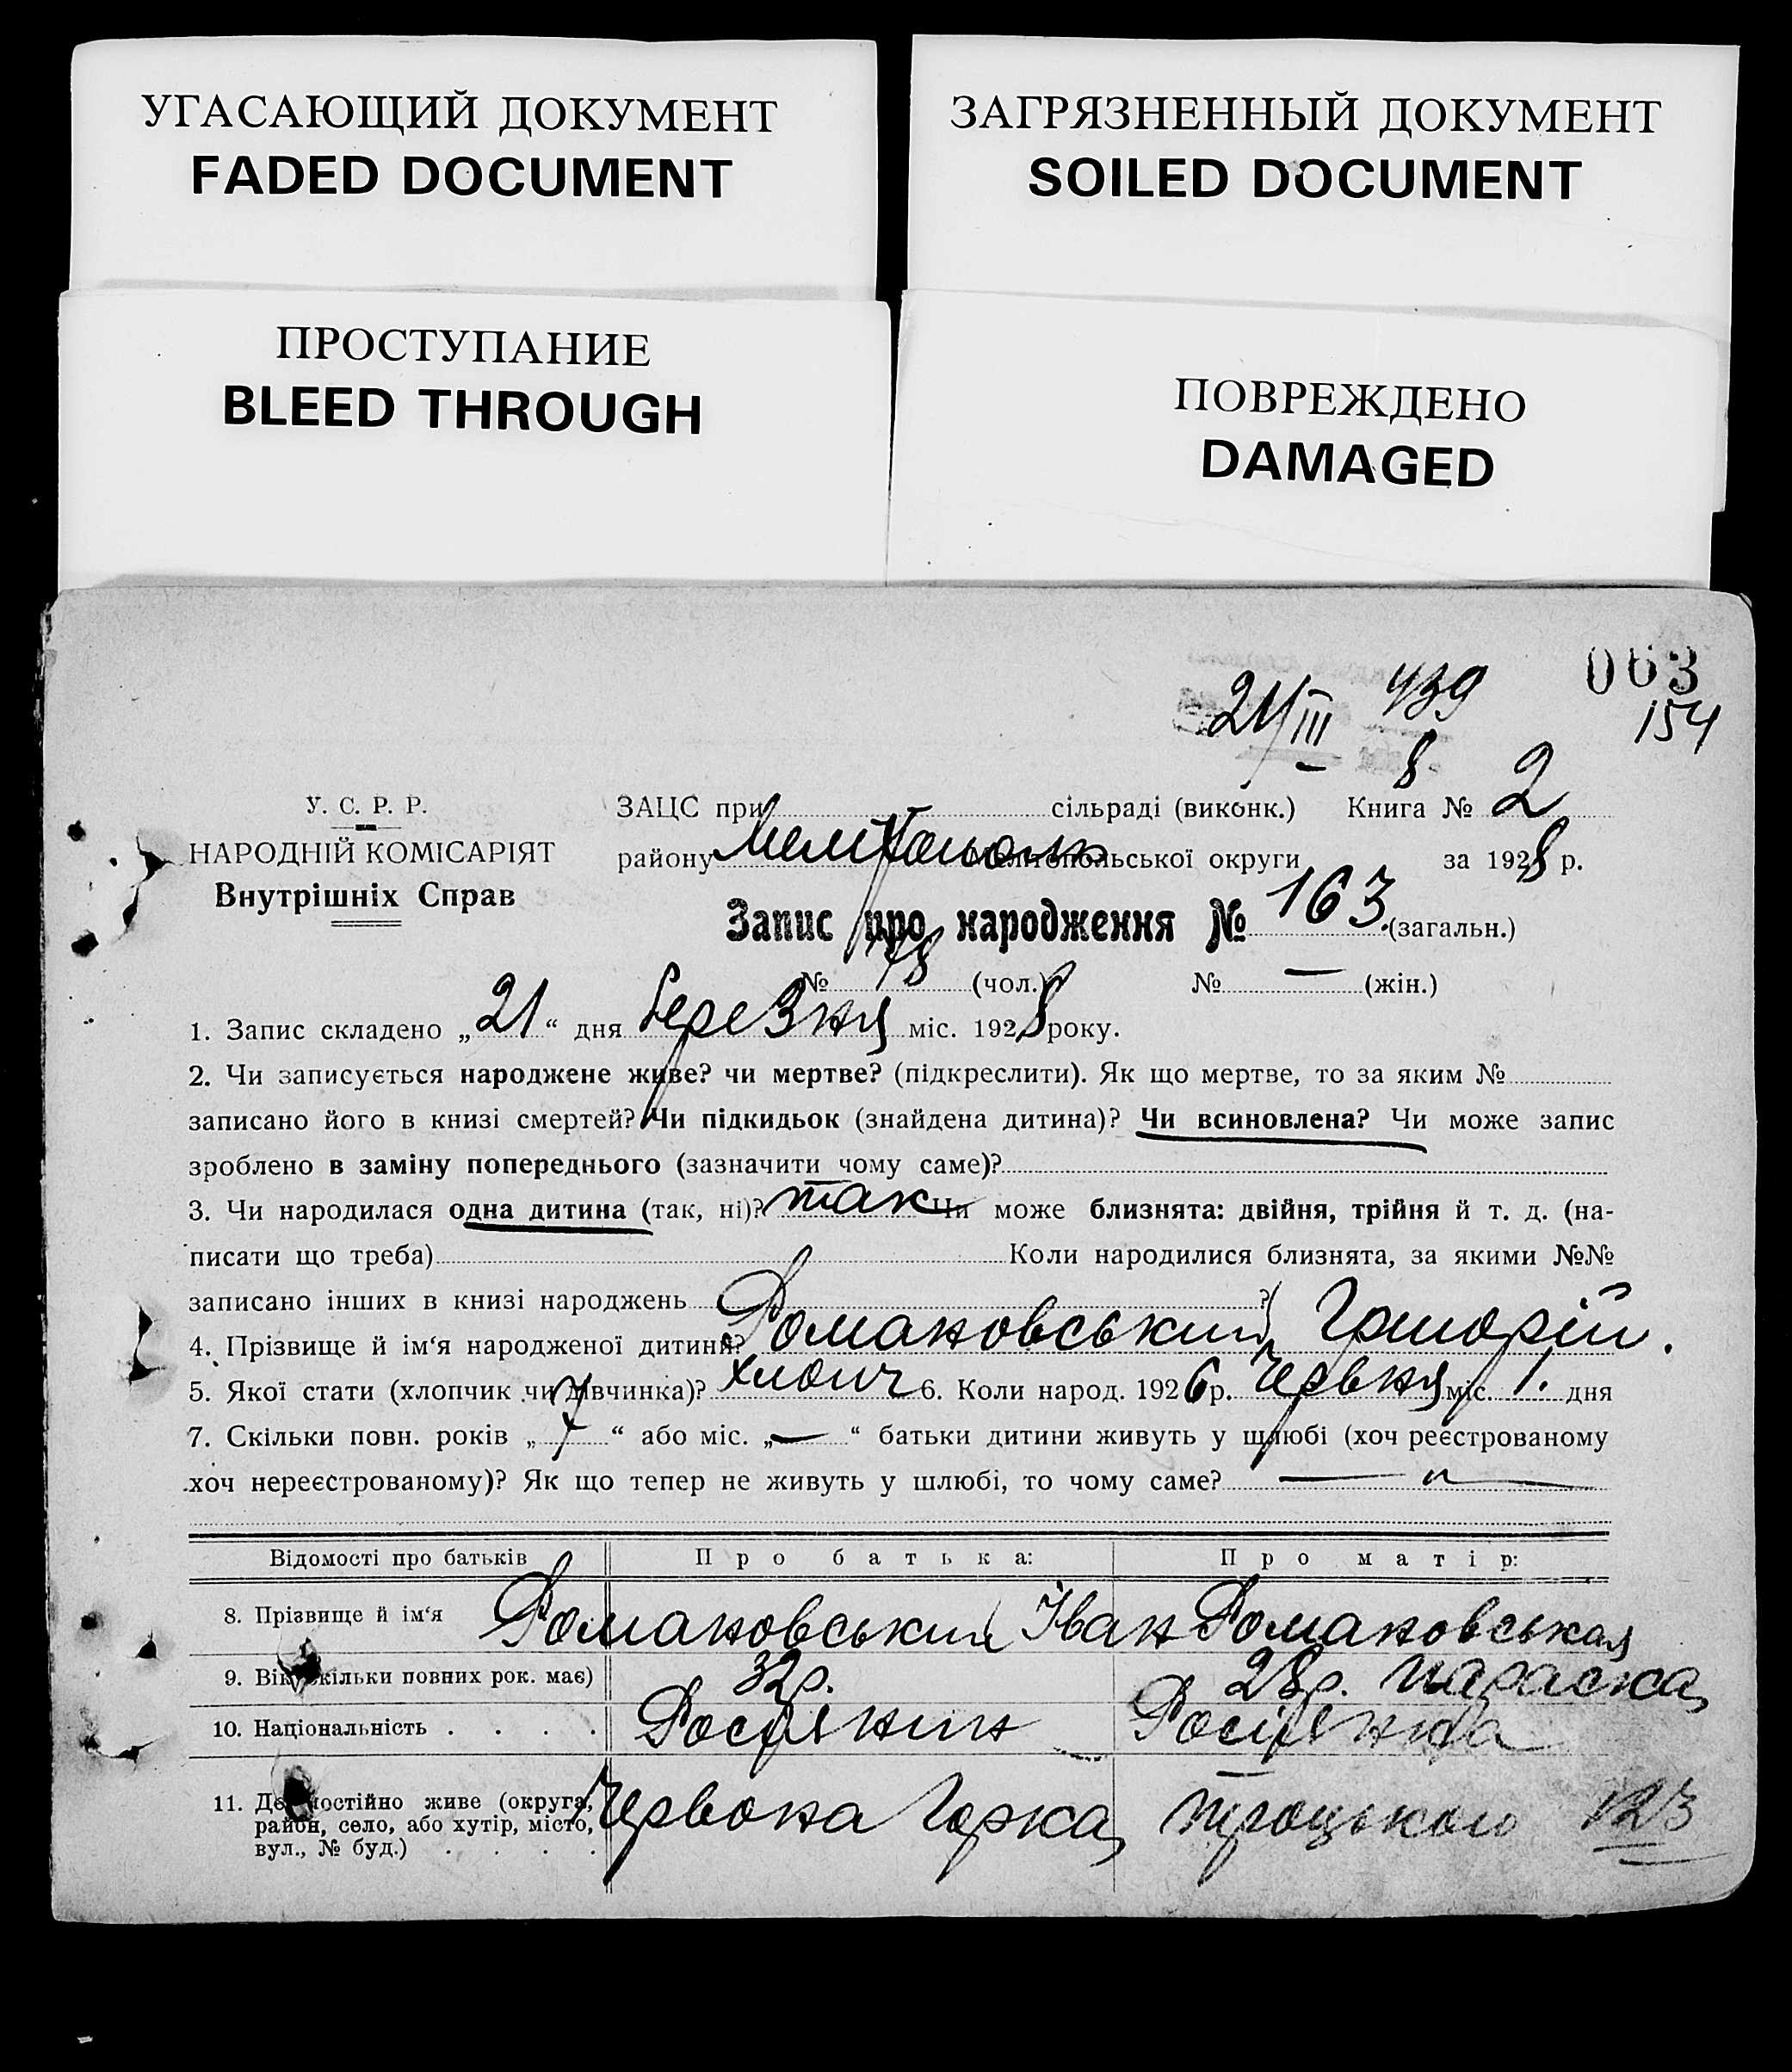 УГАСАЮЩИЙ ДОКУМЕНТ
FADED DOCUMENT
ЗАГРЯЗНЕННЫЙ ДОКУМЕНТ
SOILED DOCUMENT
ПРОСТУПАНИЕ
BLEED THROUGH
ПОВРЕЖДЕНО
DAMAGED
063
439
154
21/III 8
У. С. Р. Р.
НАРОДНІЙ КОМІСАРІЯТ
Внутрішніх Справ
ЗАЦС при сільраді (виконк.) Книга № 2
району Мелітополь Мелітопольської округи за 1928 р.
Запис про народження № 163 (загальн.)
№ 78 (чол.) № — (жін.)
1. Запис складено „21“ дня березня міс. 1928 року.
2. Чи записується народжене живе? чи мертве? (підкреслити). Як що мертве, то за яким №
записано його в книзі смертей? Чи підкидьок (знайдена дитина)? Чи всиновлена? Чи може запис
зроблено в заміну попереднього (зазначити чому саме)?
3. Чи народилася одна дитина (так, ні)? так Чи може близнята: двійня, трійня й т. д. (на-
писати що треба) Коли народилися близнята, за якими №№
записано інших в книзі народжень ?
4. Прізвище й ім‘я народженої дитини? Романовський Григорій.
5. Якої стати (хлопчик чи дівчинка)? хлопч 6. Коли народ. 1926 р. червня міс. 1. дня
7. Скільки повн. років „7“ або міс. „—“ батьки дитини живуть у шлюбі (хоч реєстрованому
хоч нереєстрованому)? Як що тепер не живуть у шлюбі, то чому саме? — „ —
Відомості про батьків Про батька: Про матір:
8. Прізвище й ім‘я Романовський Іван Романовская
9. Вік скільки повних рок. має) 32р. 28р. Параска
10. Національність . . . . Росіянин Росіянка
11. Де постійно живе (округа,
район, село, або хутір, місто,
вул., № буд.) . . . .
Червона Горка, Троцького 123